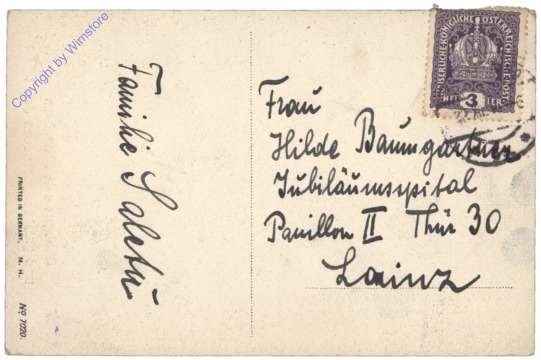 Copyright by Wimstore
Familie Saletu
PRINTED IN GERMANY. N. H. No 7020.
KAISERLICHE KÖNIGLICHE ÖSTERREICHISCHE POST
3
HELLER
Frau
Hilde Baumgartner
Jubiläumsspital
Pavillon II Thür 30
Lainz